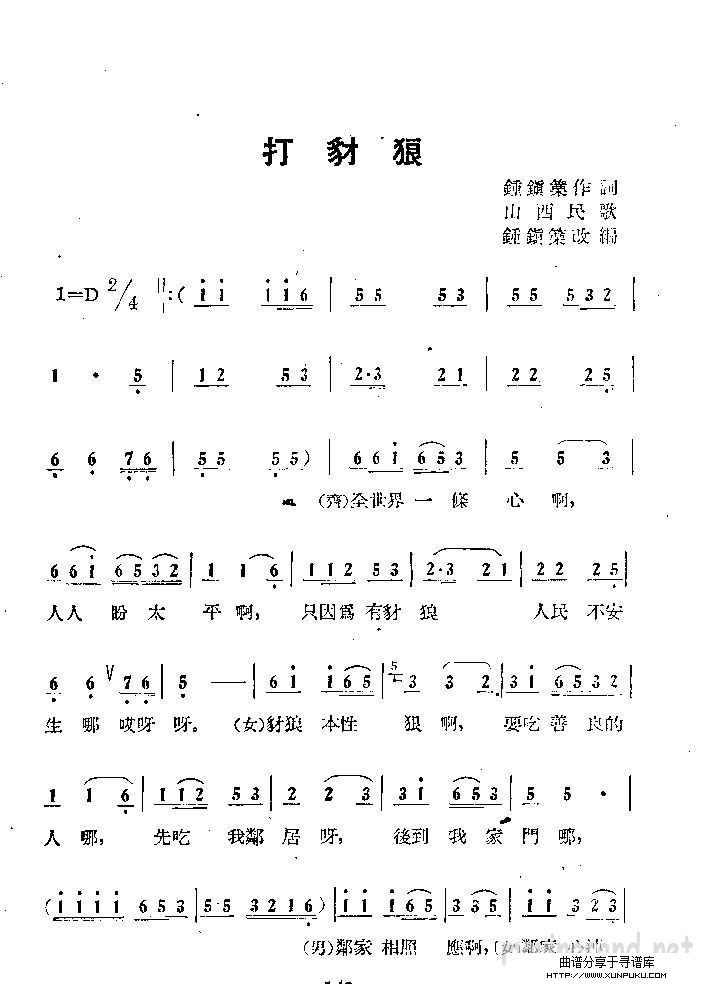 打豺狼
鍾鎭藥作詞
山西民歌
鍾鎭藥改編
1=D 2/4 ‖:( 1 1 1 1 6 | 5 5 5 3 | 5 5 5 3 2 |
1 · 5 | 1 2 5 3 | 2·3 2 1 | 2 2 2 5 |
6 6 7 6 | 5 5 5 5 ) | 6 6 1 6 5 3 | 5 5 3 |
(齊)全世界一條心啊,
6 6 1 6 5 3 2 | 1 1 6 | 1 1 2 5 3 | 2·3 2 1 | 2 2 2 5 |
人人盼太平啊, 只因爲有豺狼 人民不安
6 6 V 7 6 | 5 — | 6 1 1 6 5 | 5 3 3 2 | 3 1 6 5 3 2 |
生哪哎呀呀。 (女)豺狼本性狠啊, 要吃善良的
1 1 6 | 1 1 2 5 3 | 2 2 3 2 | 3 1 6 5 3 | 5 5 · |
人哪, 先吃我鄰居呀, 後到我家門哪,
( 1 1 1 1 6 5 3 | 5 5 3 2 1 6 ) | 1 1 1 6 5 | 3 5 3 2 | 1 1 3 2 3 |
(男)鄰家相照應啊, (女)鄰家
曲谱分享于寻谱库
HTTP://WWW.XUNPUKU.COM